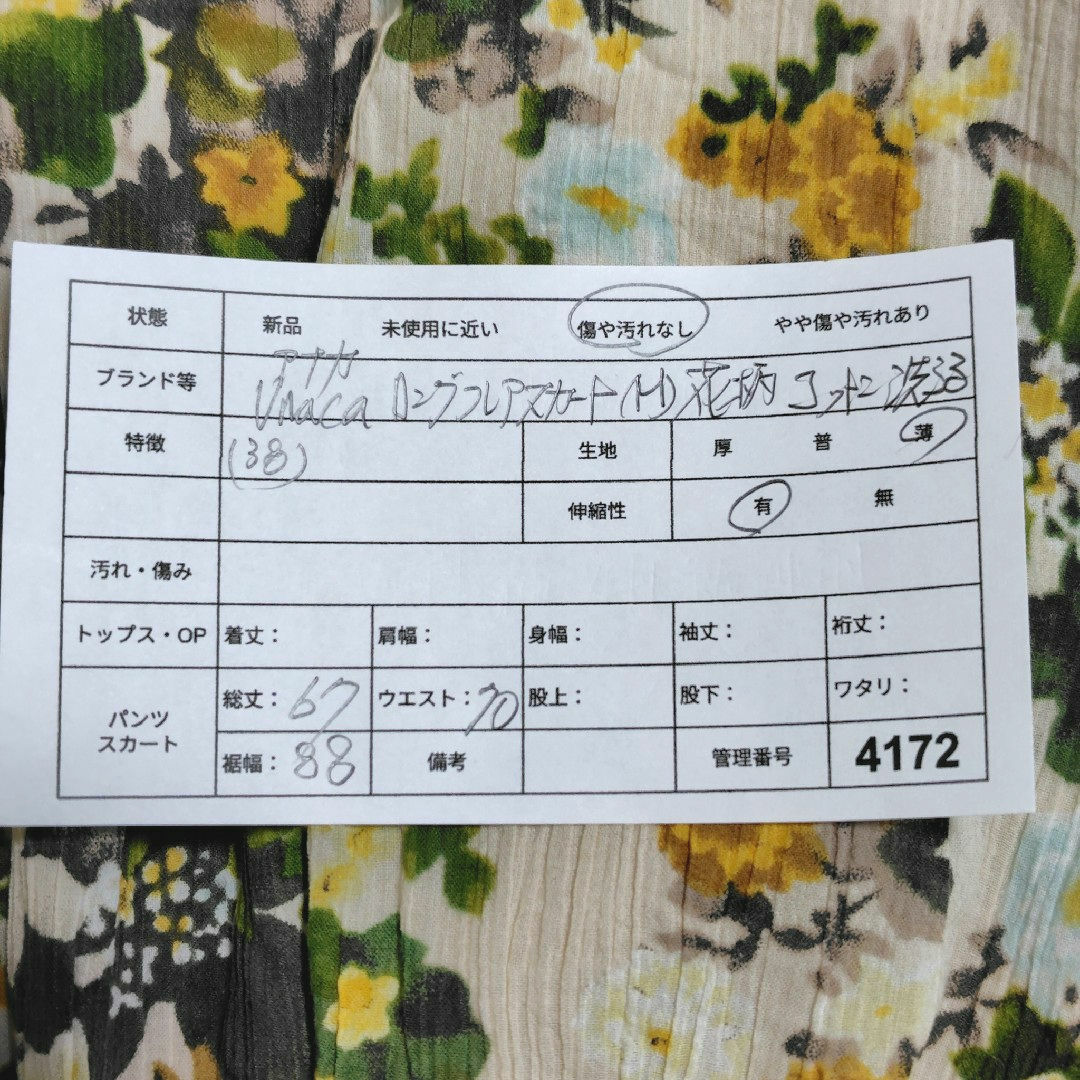 状態 新品 未使用に近い 傷や汚れなし やや傷や汚れあり
アナカ
ブランド等 Unaca ロングフレアスカート(M) 花柄 コットン 洗える
特徴 (38) 生地 厚 普 薄
伸縮性 有 無
汚れ・傷み
トップス・OP 着丈: 肩幅: 身幅: 袖丈: 裄丈:
パンツ スカート 総丈: 67 ウエスト: 70 股上: 股下: ワタリ:
裾幅: 88 備考 管理番号 4172